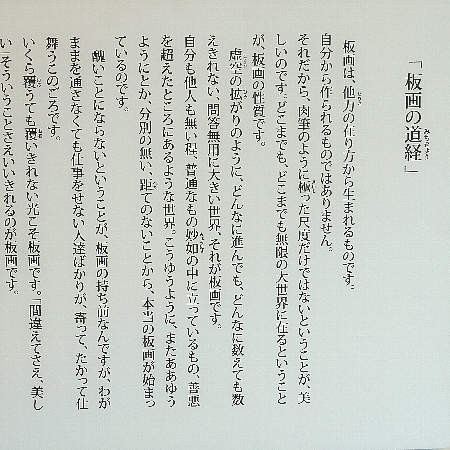 「板画の道経」
板画は、他力の在り方から生まれるものです。
自分から作られるものではありません。
それだから、肉筆のように極った尺度だけではないということが、美
しいのです。どこまでも、どこまでも無限の大世界に在るということ
が、板画の性質です。
虚空の拡がりのように、どんなに進んでも、どんなに数えても数
えきれない、問答無用に大きい世界、それが板画です。
自分も他人も無い程、普遍なもの妙如の中に立っているもの、善悪
を超えたところにあるような世界。こうゆうように、またああゆう
ようにとか、分別の無い、距てのないことから、本当の板画が始まっ
ているのです。
醜いことにならないということが、板画の持ち前なんですが、わが
ままを通さなくても仕事をせない人達ばかりが、寄って、たかって仕
舞うこのごろです。
いくら覆うても覆いきれない光こそ板画です。「間違えてさえ、美し
い」そういうことさえいいきれるのが板画です。